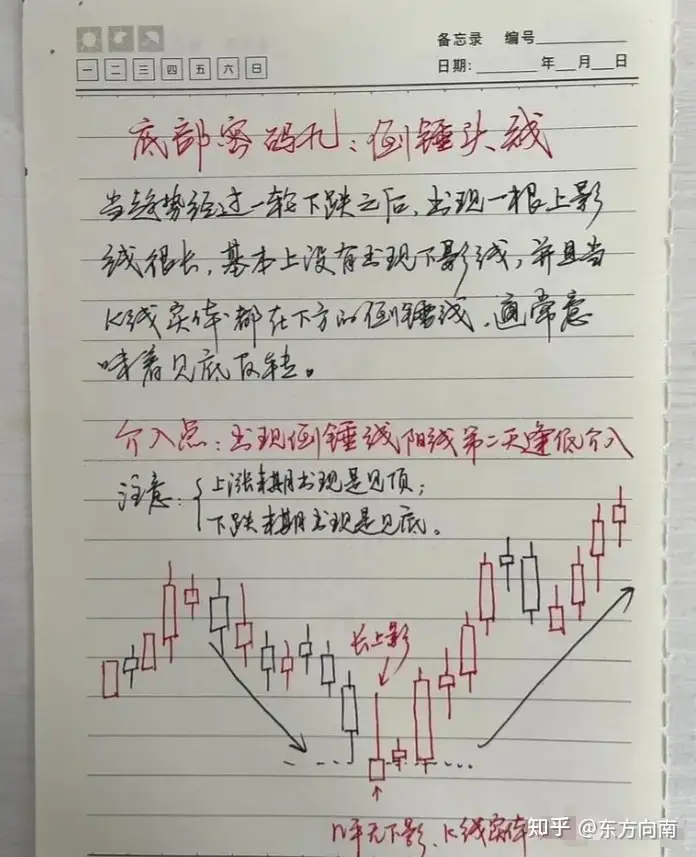 备忘录 编号
一 二 三 四 五 六 日
日期: 年 月 日
底部密码九:倒锤头线
当趋势经过一轮下跌之后,出现一根上影
线很长,基本上没有出现下影线,并且当
K线实体都在下方的倒锤线,通常意
味着见底反转。
介入点:出现倒锤线阳线第二天逢低介入
注意:上涨末期出现是见顶;
下跌末期出现是见底。
长上影
几乎无下影、K线实体
知乎 @东方向南